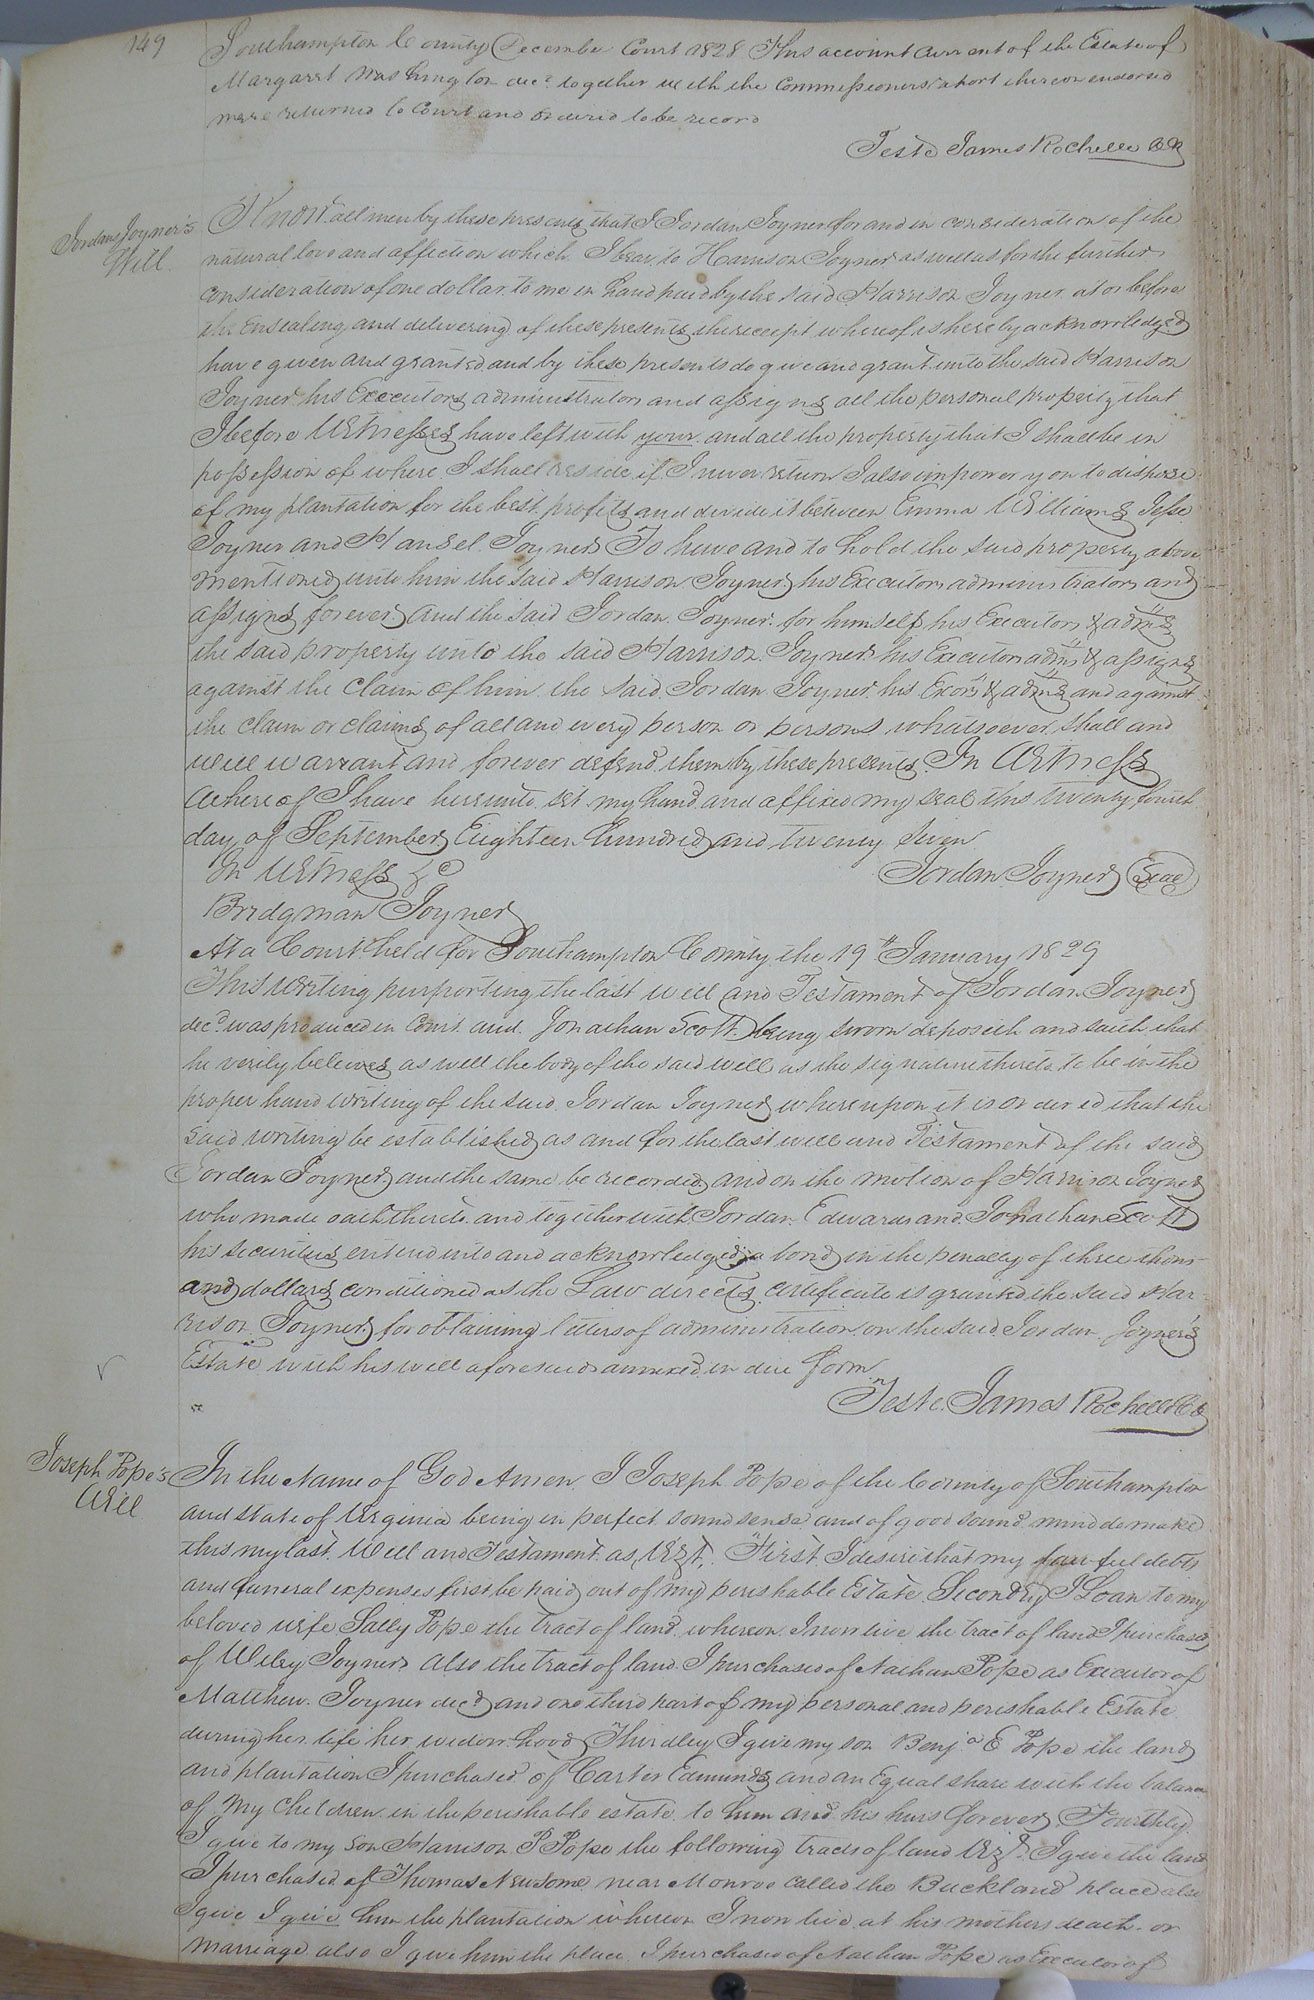 149
Southampton County December Court 1828 This account Current of the Estate of
Margaret Washington decd together with the Commissioners report thereon endorsed
were returned to Court and Ordered to be record
Teste James Rochelle CC
Jordan Joyner's
Will
Know all men by these presents that I Jordan Joyner for and in consideration of the
natural love and affection which I bear to Harrison Joyner as well as for the further
consideration of one dollar to me in hand paid by the said Harrison Joyner at or before
the Ensealing and delivering of these presents the receipt whereof is hereby acknowledged
have given and granted and by these presents do give and grant unto the said Harrison
Joyner his Executors administrators and assigns all the personal property that
I before Witnesses have left with your and all the property that I shall be in
possession of where I shall reside if I never return I also impower you to dispose
of my plantation for the best profits and divide it between Emma Williams Jesse
Joyner and Hansel Joyner To have and to hold the said property above
mentioned unto him the said Harrison Joyner his Executors administrators and
assigns forever and the said Jordan Joyner for himself his Executors & admrs
the said property unto the said Harrison Joyner his Executors admrs & assigns
against the claim of him the said Jordan Joyner his Exors & admrs and against
the claim or claims of all and every person or persons whatsoever shall and
will warrant and forever defend them by these presents In Witness
Whereof I have hereunto set my hand and affixed my seal this twenty fourth
day of September Eighteen hundred and twenty Seven
In Witness &c
Jordan Joyner Seal
Bridgman Joyner
At a Court held for Southampton County the 19th January 1829
This Writing purporting the last will and Testament of Jordan Joyner
decd was produced in Court and Jonathan Scott being sworn deposeth and saith that
he verily believes as well the body of the said will as the signature thereto to be in the
proper hand writing of the said Jordan Joyner whereupon it is ordered that the
said writing be established as and for the last will and Testament of the said
Jordan Joyner and the same be recorded and on the motion of Harrison Joyner
who made oath thereto and together with Jordan Edwards and Jonathan Scott
his securities entered into and acknowledged a bond in the penalty of three thous-
and dollars conditioned as the Law directs certificate is granted the said Har-
rison Joyner for obtaining letters of administration on the said Jordan Joyner's
Estate with his will aforesaid annexed in due form
Teste James Rochelle CC
Joseph Pope's
Will
In the Name of God Amen I Joseph Pope of the County of Southampton
and state of Virginia being in perfect sound sense and of good sound mind do make
this my last Will and Testament as, Vizt, First I desire that my lawful debts
and funeral expenses first be paid out of my perishable Estate Secondly I Loan to my
beloved wife Sally Pope the tract of land whereon I now live the tract of land I purchased
of Wiley Joyner also the tract of land I purchased of Nathan Pope as Executor of
Matthew Joyner decd and one third part of my personal and perishable Estate
during her life her widowhood Thirdley I give my son Benja E Pope the land
and plantation I purchased of Carter Edmunds and an Equal share with the balance
of My Children in the perishable estate to him and his hiers forever, Fourthly
I give to my son Harrison P Pope the following tracts of land Vizt I give the land
I purchased of Thomas Newsome near Monroe called the Buckland place also
I give I give him the plantation whereon I now live at his mothers death or
marriage also I give him the place I purchased of Nathan Pope as Executor of